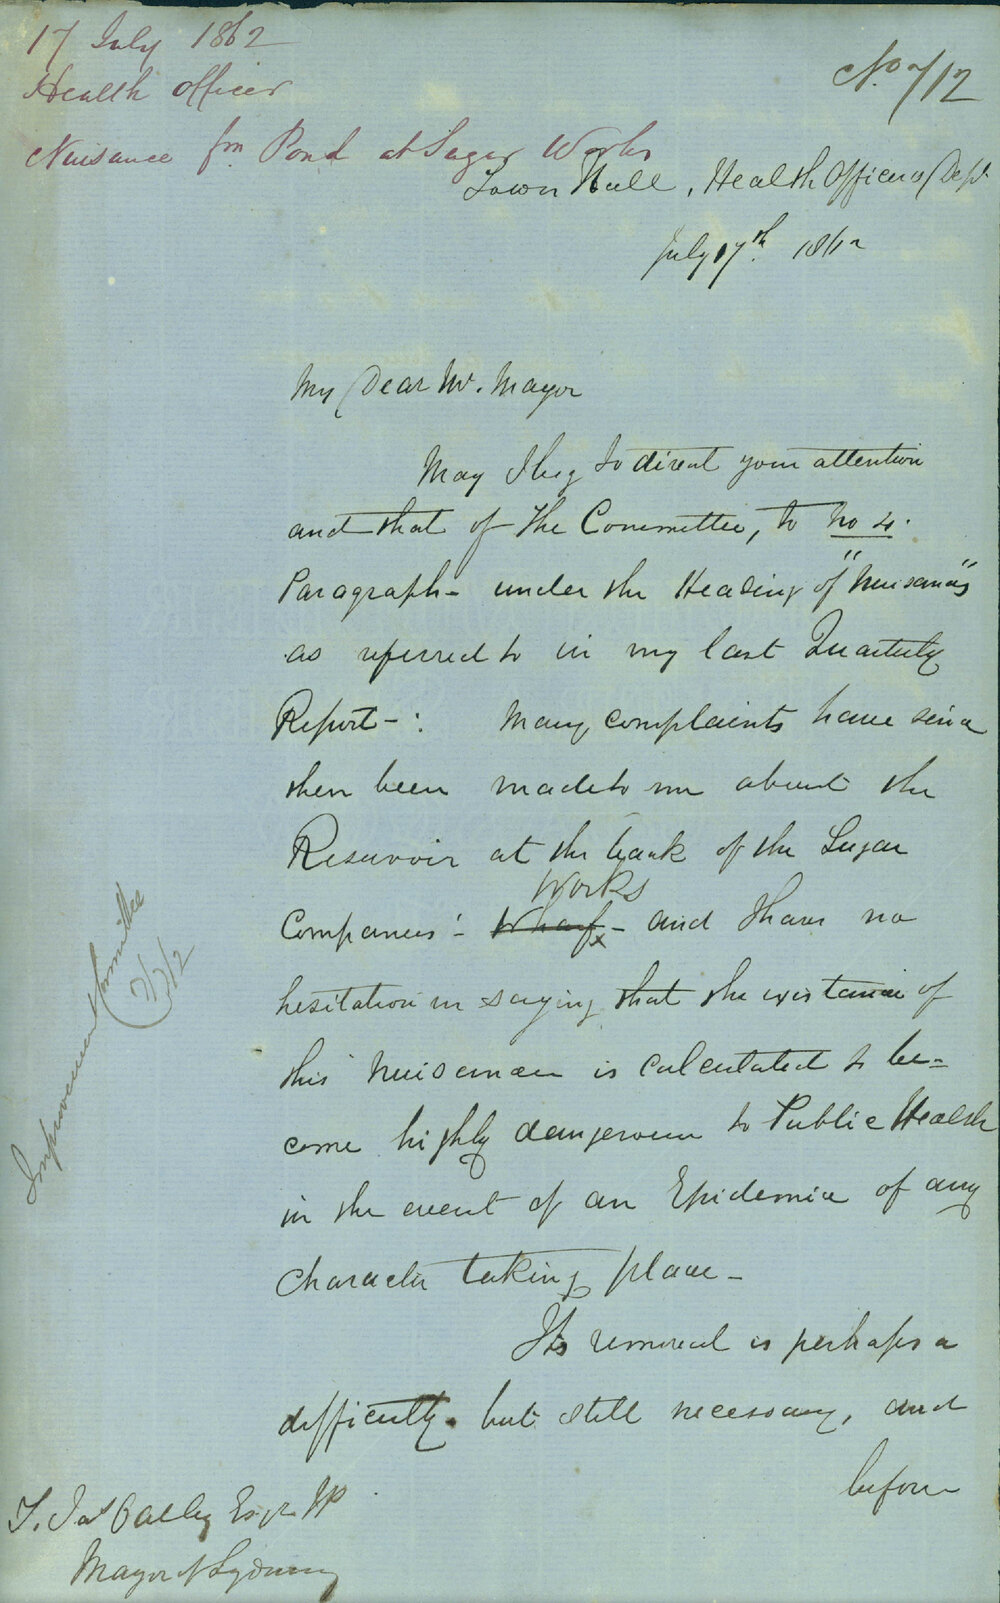 17 July 1862
Health Officer
Nuisance fm Pond at Sugar Works
No 712
Town Hall, Health Officers Dept
July 17th 1862
My Dear Mr. Mayor
May I beg to direct your attention
and that of the Committee, to No 4.
Paragraph - under the Heading of "Nuisances"
as referred to in my last Quarterly
Report - : Many complaints have since
then been made to me about the
Reservoir at the back of the Sugar
Works
Companies' - Wharf x - and I have no
hesitation in saying that the existence of
this Nuisance is calculated to be=
come highly dangerous to Public Health
in the event of an Epidemic of any
character taking place -
Its removal is perhaps a
difficulty. but still necessary, and
before
Improvement Committee
T. Jas Oatley Esqr JP
Mayor of Sydney